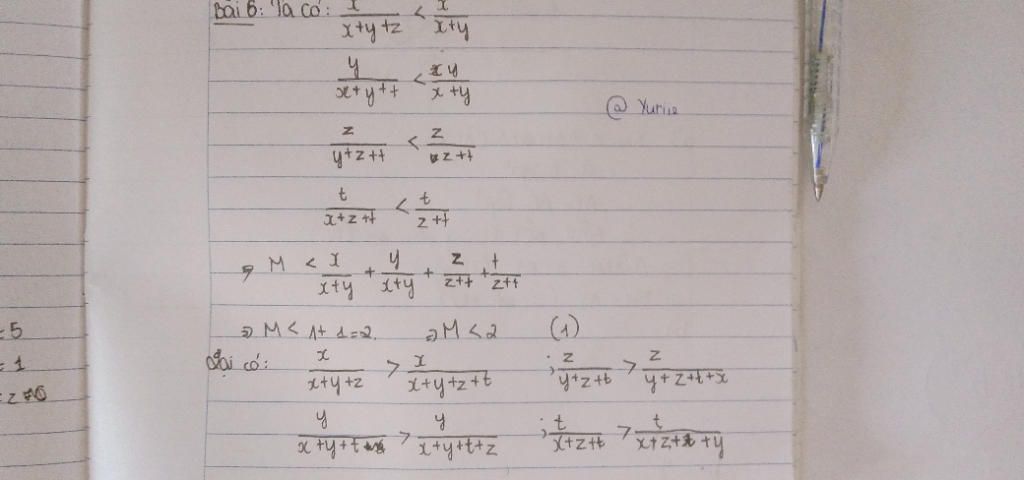 Bài 6: Ta có: x/(x+y+z) < x/(x+y)
y/(x+y+t) < y/(x+y)
@ Yuriie
z/(y+z+t) < z/(z+t)
t/(x+z+t) < t/(z+t)
⇒ M < x/(x+y) + y/(x+y) + z/(z+t) + t/(z+t)
⇒ M < 1+1=2. ⇒ M < 2 (1)
Lại có: x/(x+y+z) > x/(x+y+z+t) ; z/(y+z+t) > z/(y+z+t+x)
y/(x+y+t) > y/(x+y+t+z) ; t/(x+z+t) > t/(x+z+t+y)
= 5
= 1